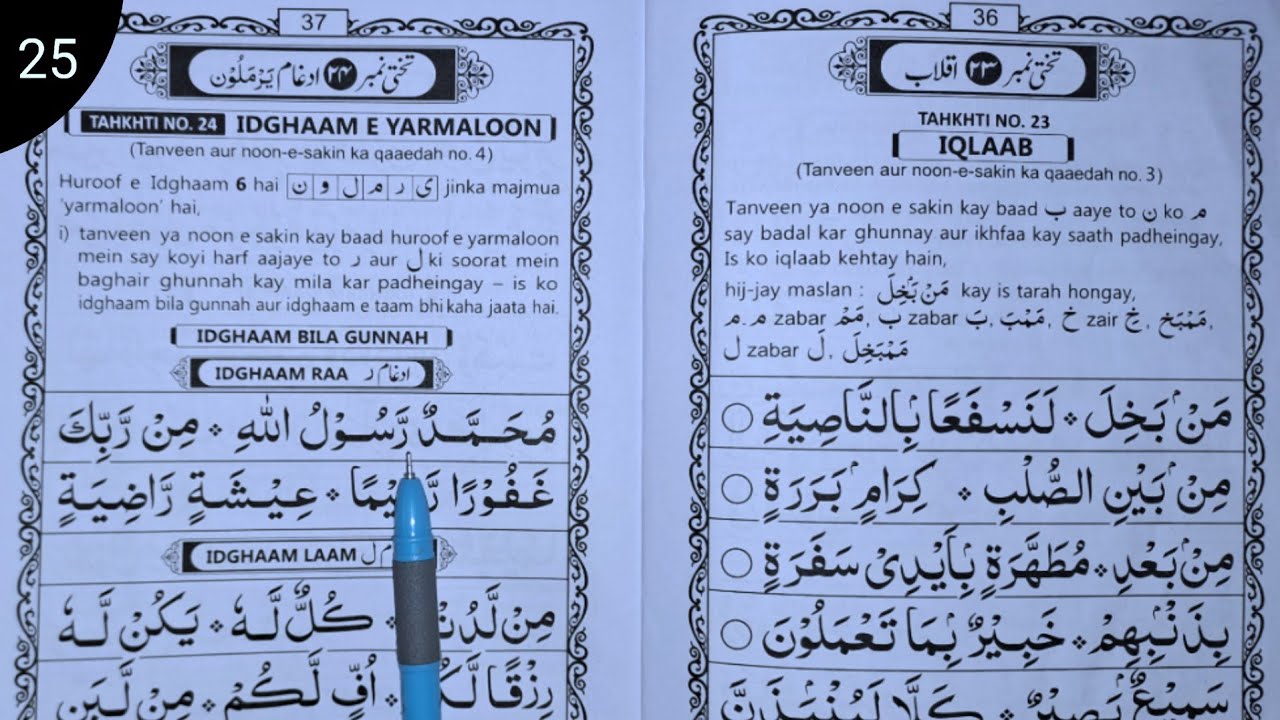 25
37
تختی نمبر ۲۴ ادغام یَرْمَلُوْن
TAHKHTI NO. 24 IDGHAAM E YARMALOON
(Tanveen aur noon-e-sakin ka qaaedah no. 4)
Huroof e Idghaam 6 hai ی ر م ل و ن jinka majmua
'yarmaloon' hai,
i) tanveen ya noon e sakin kay baad huroof e yarmaloon
mein say koyi harf aajaye to ر aur ل ki soorat mein
baghair ghunnah kay mila kar padheingay – is ko
idghaam bila gunnah aur idghaam e taam bhi kaha jaata hai.
IDGHAAM BILA GUNNAH
IDGHAAM RAA ادغام ر
مُحَمَّدٌ رَّسُوْلُ اللّٰهِ * مِنْ رَّبِّكَ
غَفُوْرًا * عِيْشَةٍ رَّاضِيَةٍ
IDGHAAM LAAM ل
مِنْ * كُلٌّ لَّهٗ * يَكُنْ لَّهٗ
رِزْقًا * اُفٍّ لَّكُمْ * مِنْ لَّبَنٍ
36
تختی نمبر ۲۳ اقلاب
TAHKHTI NO. 23
IQLAAB
(Tanveen aur noon-e-sakin ka qaaedah no. 3)
Tanveen ya noon e sakin kay baad ب aaye to ن ko م
say badal kar ghunnay aur ikhfaa kay saath padheingay,
Is ko iqlaab kehtay hain,
hij-jay maslan : مَنْۢ بَخِلَ kay is tarah hongay,
م ـ م zabar مَمْ, ب zabar بَ, مَمْبَ, خ zair خِ, مَمْبَخِ,
ل zabar لَ, مَمْبَخِلَ
مَنْۢ بَخِلَ * لَنَسْفَعًۢا بِالنَّاصِيَةِ
مِنْۢ بَيْنِ الصُّلْبِ * كِرَامٍۢ بَرَرَةٍ
مِنْۢ بَعْدِ * مُطَهَّرَةٍۢ بِاَيْدِيْ سَفَرَةٍ
بِذَنْۢبِهِمْ * خَبِيْرٌۢ بِمَا تَعْمَلُوْنَ
سَمِيْعٌۢ بَصِيْرٌ * كَلَّا لَيُنْۢبَذَنَّ